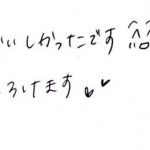 いしかったです
ろけます